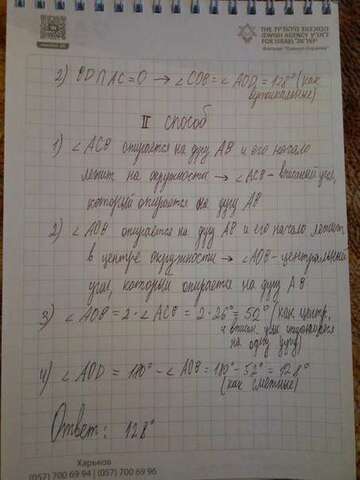 THE
JEWISH AGENCY
FOR ISRAEL
2) BD∩AC=O → ∠COB=∠AOD=128° (как
вертикальные)
II способ
1) ∠ACB опирается на дугу AB и его начало
лежит на окружности → ∠ACB - вписаный угол,
который опирается на дугу AB
2) ∠AOB опирается на дугу AB и его начало лежит
в центре окружности → ∠AOB - центральный
угол, который опирается на дугу AB
3) ∠AOB = 2·∠ACB = 2·26° = 52° (как центр.
и впис. углы опирающиеся
на одну дугу)
4) ∠AOD = 180° - ∠AOB = 180° - 52° = 128°
(как смежные)
Ответ: 128°
Харьков
(057) 700 69 94 | (057) 700 69 96